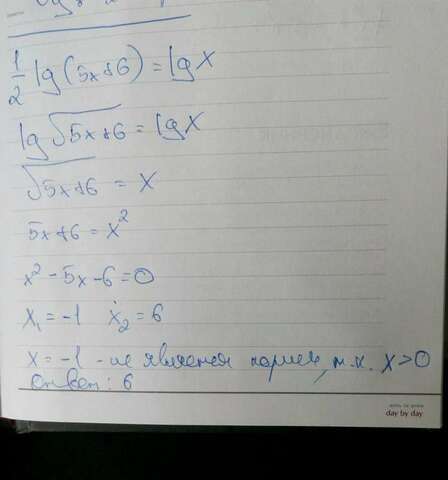 1/2 lg(5x+6) = lg x
lg √5x+6 = lg x
√5x+6 = x
5x+6 = x²
x² - 5x - 6 = 0
x₁ = -1 x₂ = 6
x = -1 - не является корнем, т.к. x > 0
Ответ: 6
day by day